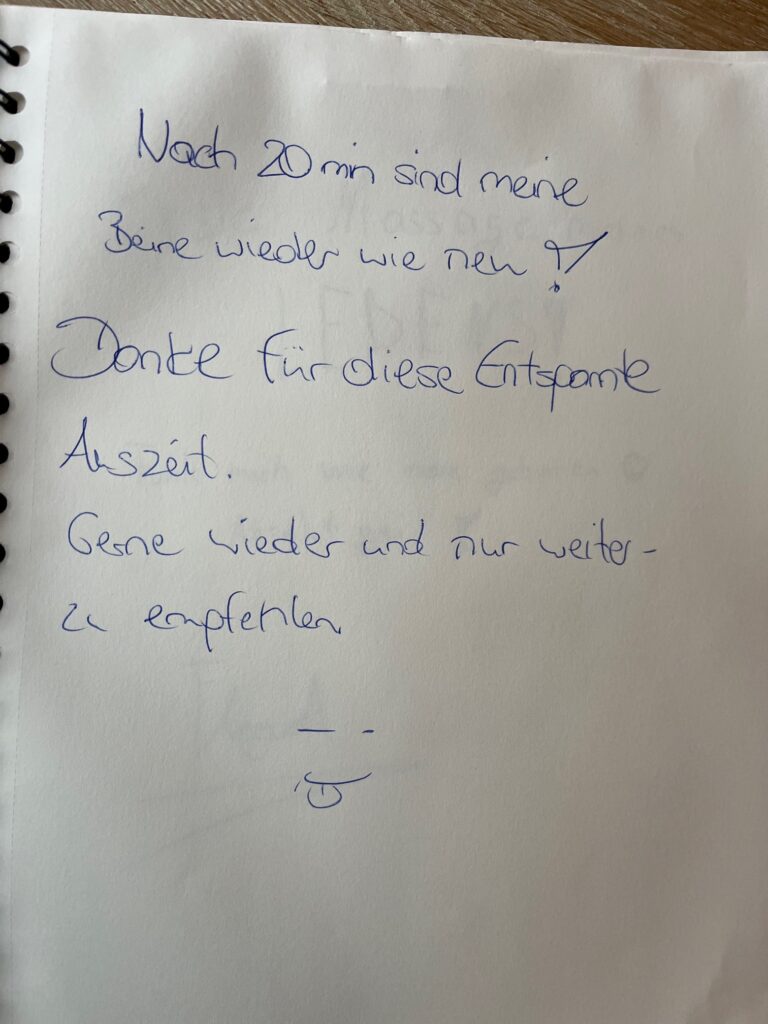 Nach 20 min sind meine
Beine wieder wie neu !
Danke für diese Entspannte
Auszeit.
Gerne wieder und nur weiter-
zu empfehlen